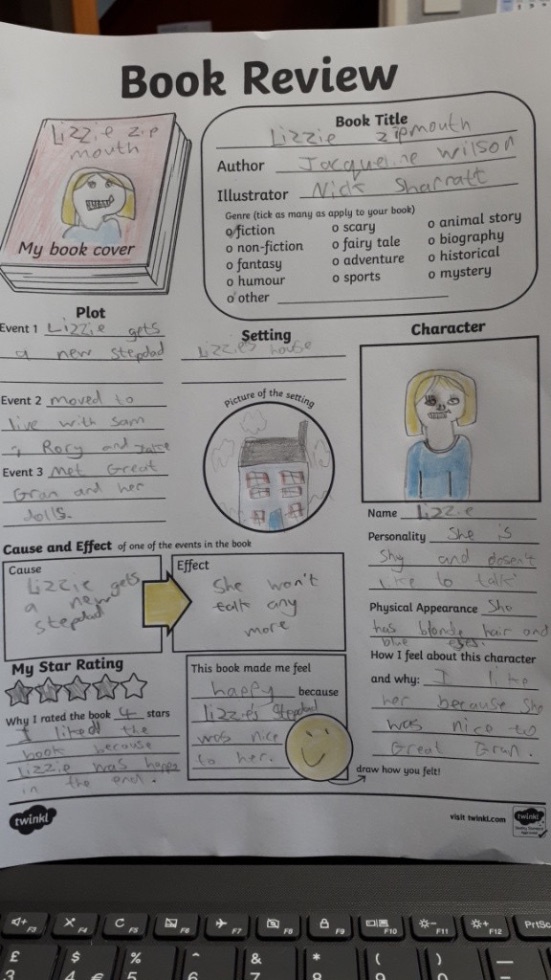 Book Review
Lizzie zip
mouth
My book cover
Book Title
Lizzie zipmouth
Author Jacqueline Wilson
Illustrator Nick Sharratt
Genre (tick as many as apply to your book)
o fiction
o non-fiction
o fantasy
o humour
o other
o scary
o fairy tale
o adventure
o sports
o animal story
o biography
o historical
o mystery
Plot
Event 1 Lizzie gets
a new stepdad
Event 2 moved to
live with Sam
, Rory and Jake
Event 3 Met Great
Gran and her
dolls.
Setting
Lizzies house
Picture of the setting
Character
Name Lizzie
Personality She is
Shy and dosen't
like to talk
Physical Appearance She
has blonde hair and
blue eyes.
How I feel about this character
and why: I like
her because she
was nice to
Great Gran.
Cause and Effect of one of the events in the book
Cause
Lizzie gets
a new
stepdad
Effect
She won't
talk any
more
My Star Rating
Why I rated the book 4 stars
I liked the
book because
Lizzie was happy
in the end.
This book made me feel
happy because
Lizzies Stepdad
was nice
to her.
draw how you felt!
twinkl
visit twinkl.com
twinkl
F3
F4
F5
F6
F7
F8
F9
F10
F11
F12
PrtSc
£
3
$
4 €
%
5
^
6
&
7
*
8
(
)